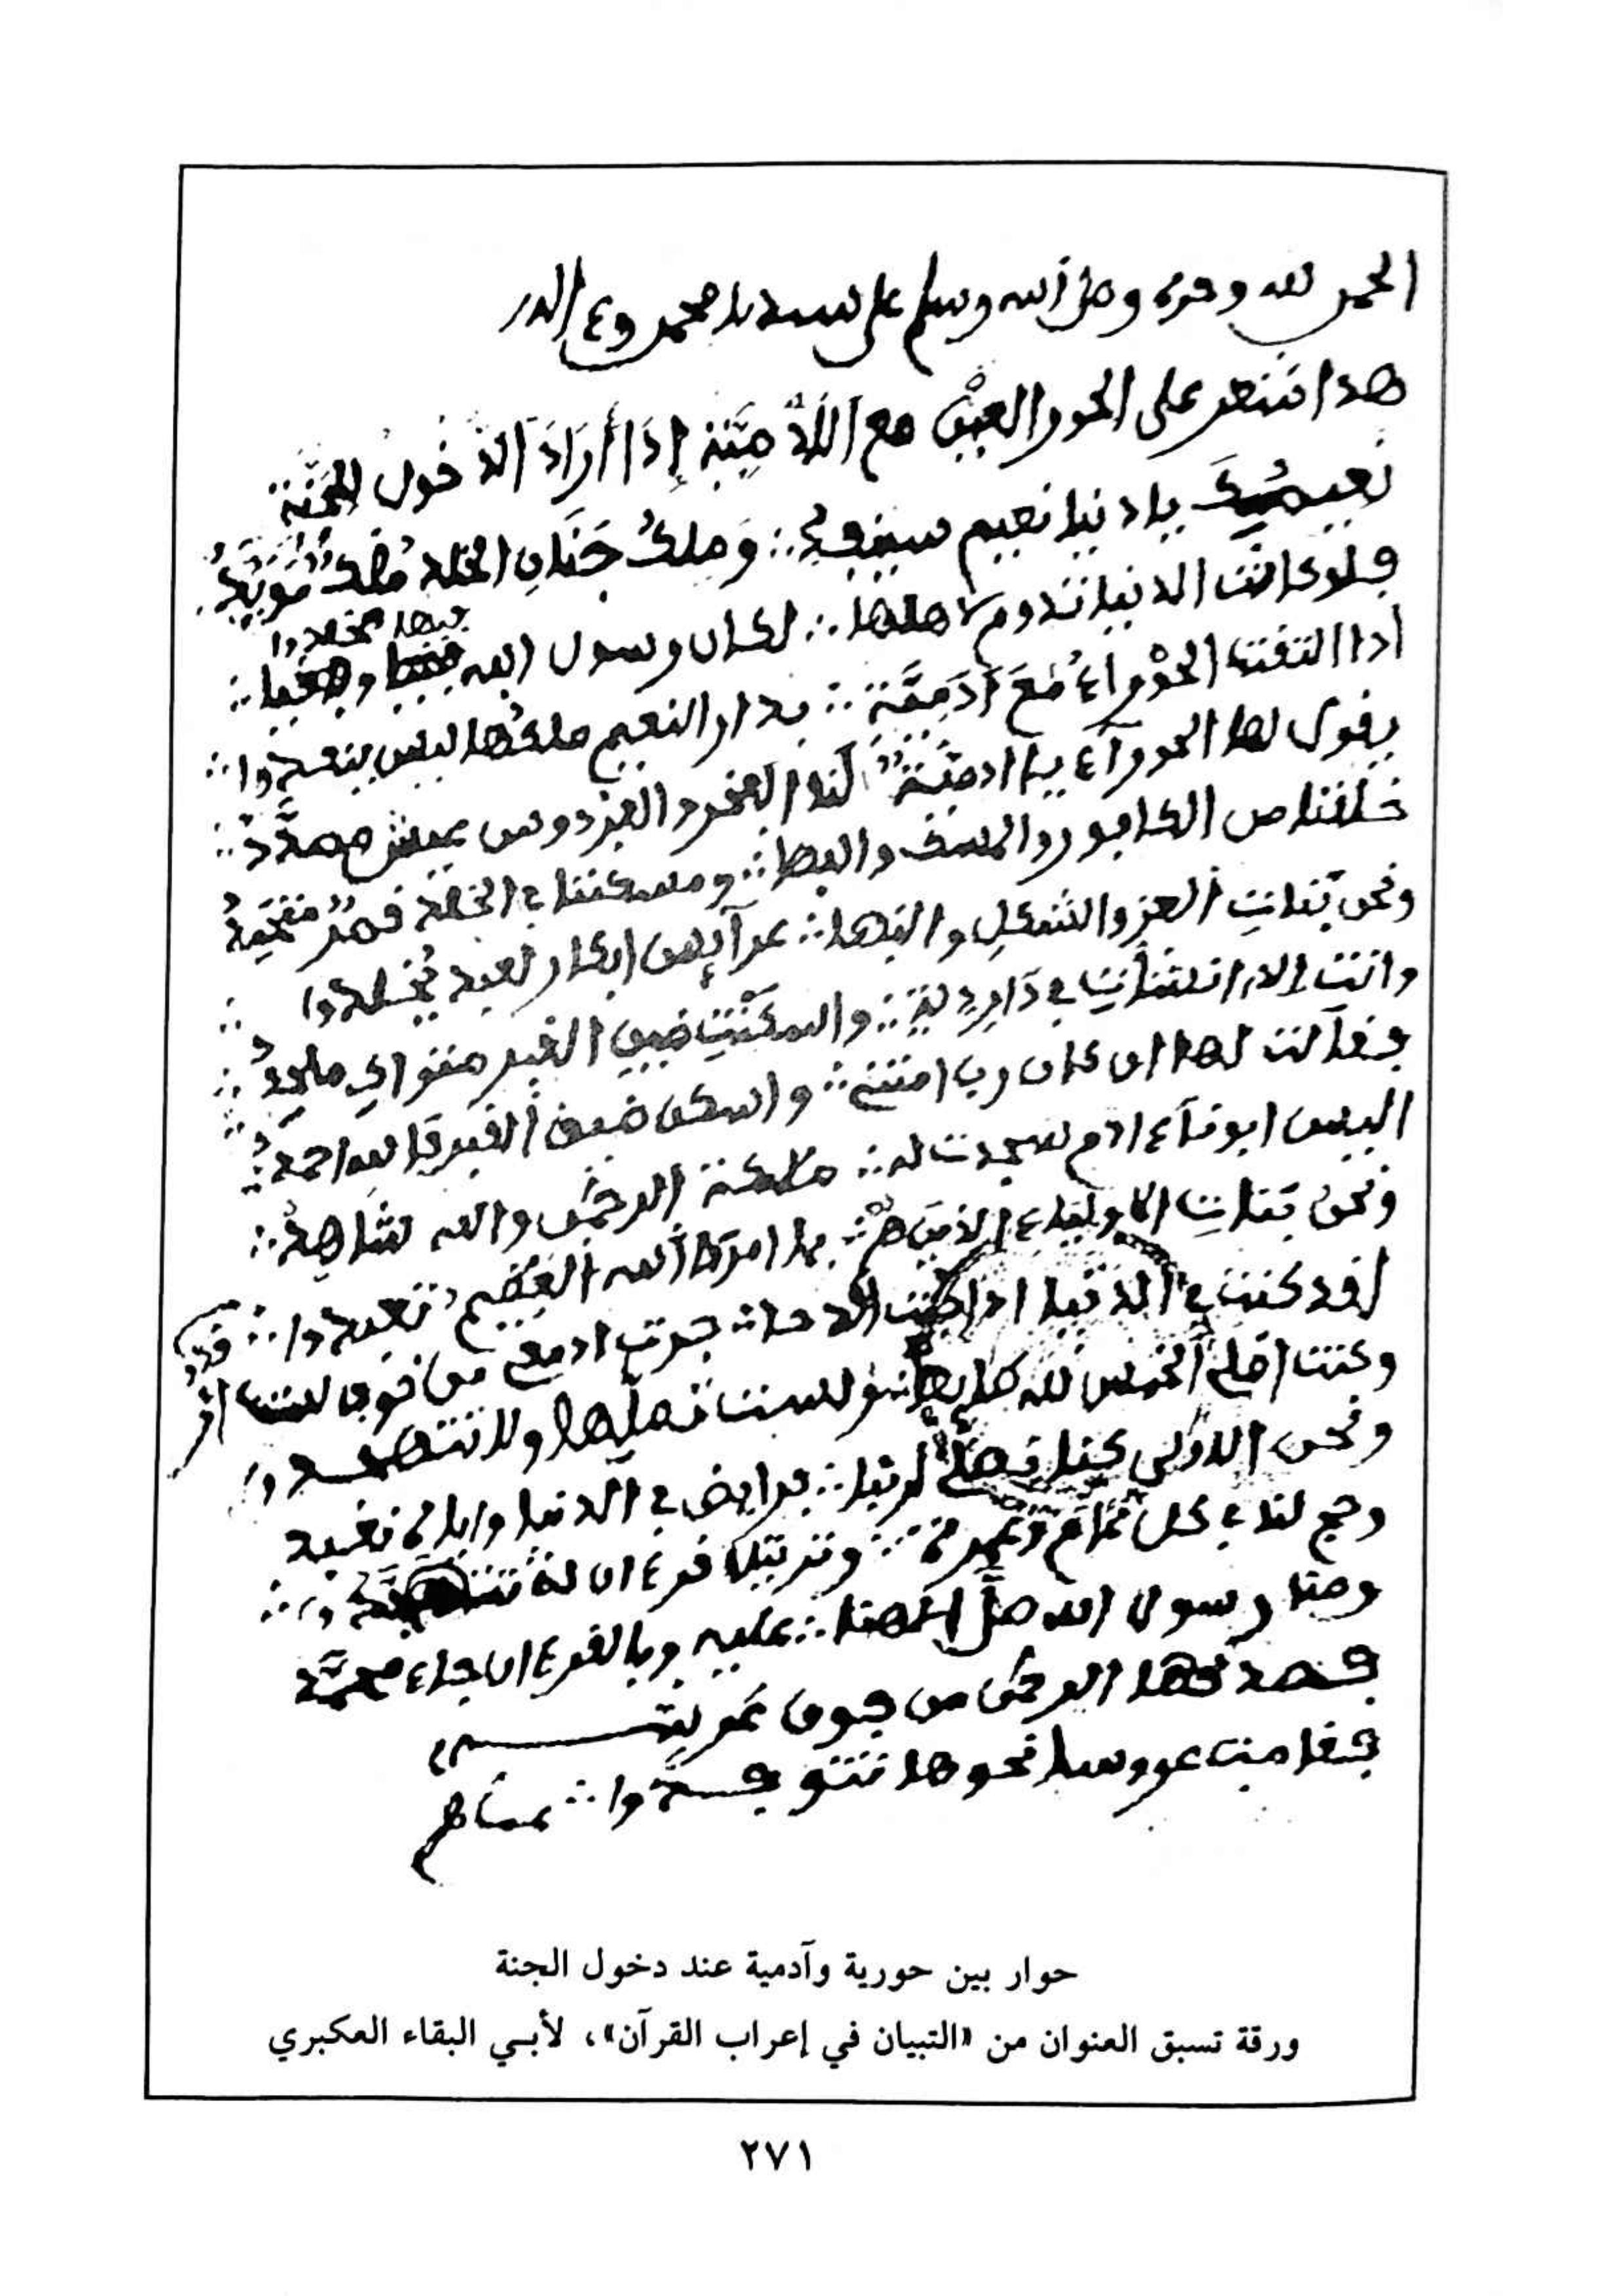 الحمد لله وحده وصلى الله وسلم على سيدنا محمد وءاله
هذا شعر على الحور العين مع الآدمِيّة إذَا أرَادَ الدخول للجَنَّة
نعيمك يا دنيا نعيم سينفد ∴ وَملكُ جَنَانِ الخلد مُلكٌ مُوَبَّدُ
فلو كانت الدنيا تدوم لاهلها ∴ لكان رسول الله فيها مخلدا
اذا التفت الحوْراءُ مَعَ ءَادَمِيَّة ∴ بدار النعيم ملكُها ليس ينفدوا ∴
يقول لها الحورآء يا ادميَّة لَنا الفخر والفردوس عيش ممهَّدُ ∴
خلقنا من الكافور والمسك والبها ∴ ومسكننا في الخلد قصرٌ
ونحن بَنات العز والشكلِ والبها ∴ عرآيس ابكار لعبد مُخلدوا
وانتِ نشأتِ في دَارِ ∴ واسكنْتِ ضيق القبر مثواكِ ملحدُ ∴
فقآلت لها ان كان ربي امتني ∴ واسكن ضيق القبر قالله احمدُ ∴
اليس ابونآء ادم سجدت له ∴ ملاىكة الرحمٰن والله شاهِدُ ∴
ونحن بَناتِ الاوليآء الذين هُمُ ∴ بما امرَهَا الله العَظيم تعبدوا ∴
لقد كنت في الدنيا اذا الدجا ∴ جرت ادمعي من خوف
وكنت اصلي الخمس لله لست تصليها ولا تتهجدوا
ونحن اللاوْلى كنا نصلّي لربنا ∴ فرايض في الدنيا وإياه نعبد
وحج لنا في كل عَام وعُمرة ∴ وترتيل قرءان له
ومنا رسول الله صلَّى الاهنا ∴ عليه وبالقرءان جاء محمَّد
فصدقها الرحمٰن من فوق عَرشه
فقامت عروسا نحوها تتوقدوا ∴
حوار بين حورية وآدمية عند دخول الجنة
ورقة تسبق العنوان من «التبيان في إعراب القرآن»، لأبي البقاء العكبري
٢٧١